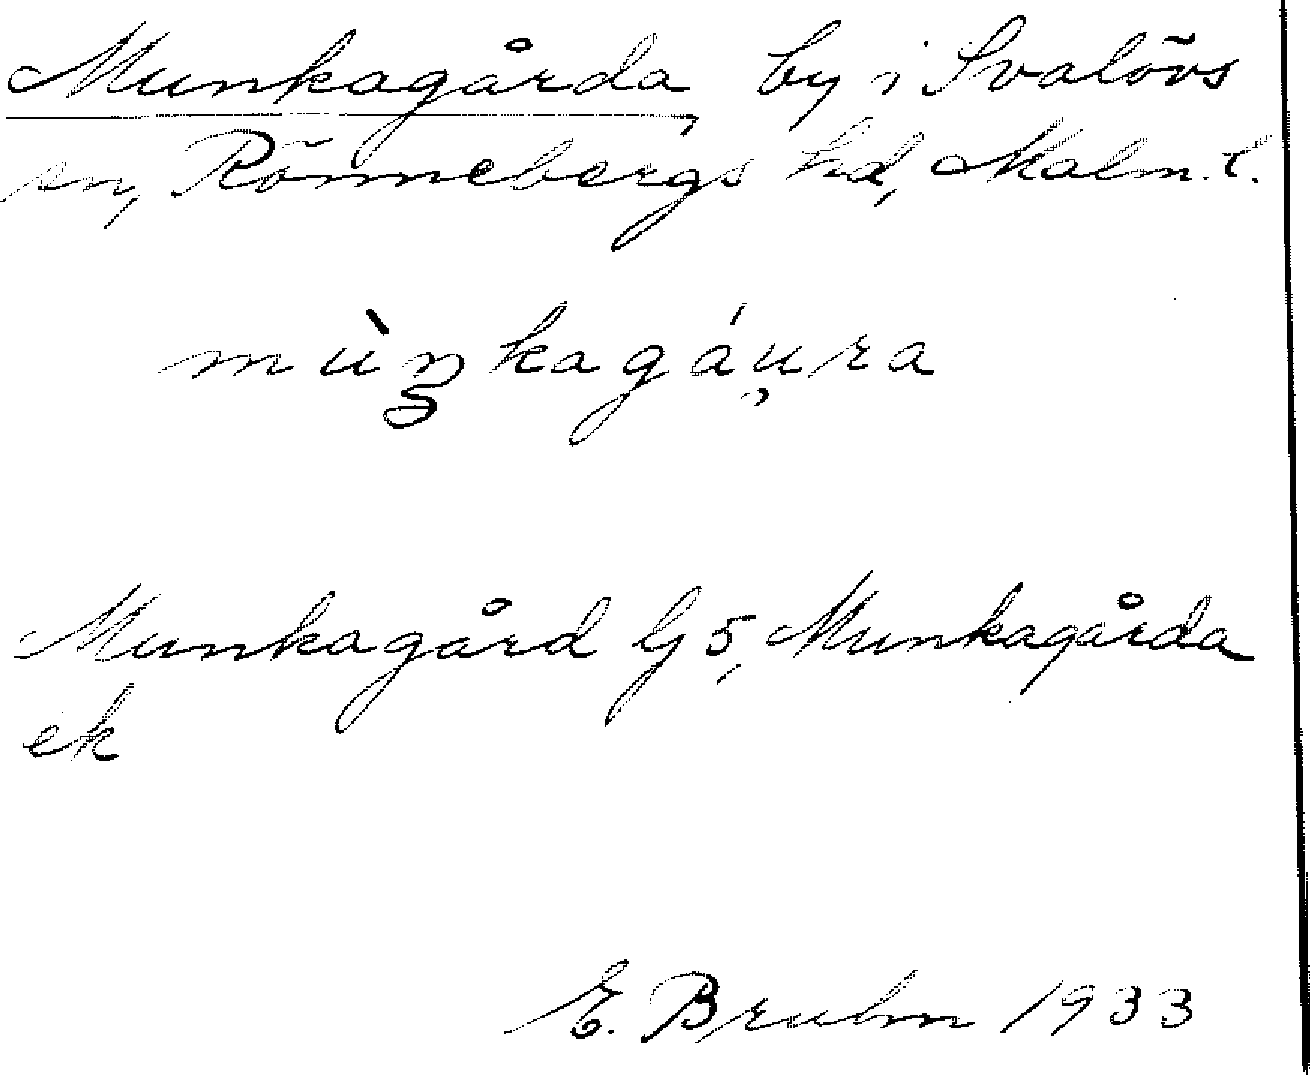 Munkagårda, by i Svalövs
sn, Rönnebergs hd, Malm. l.
mùŋkagáu̯ra
Munkagård G 5, Munkagårda
ek
E. Bruhn 1933